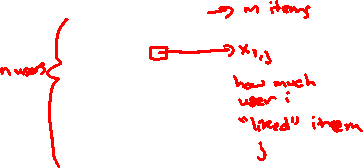 → m items
n users
→ x i,j
how much
user i
"liked" item
j